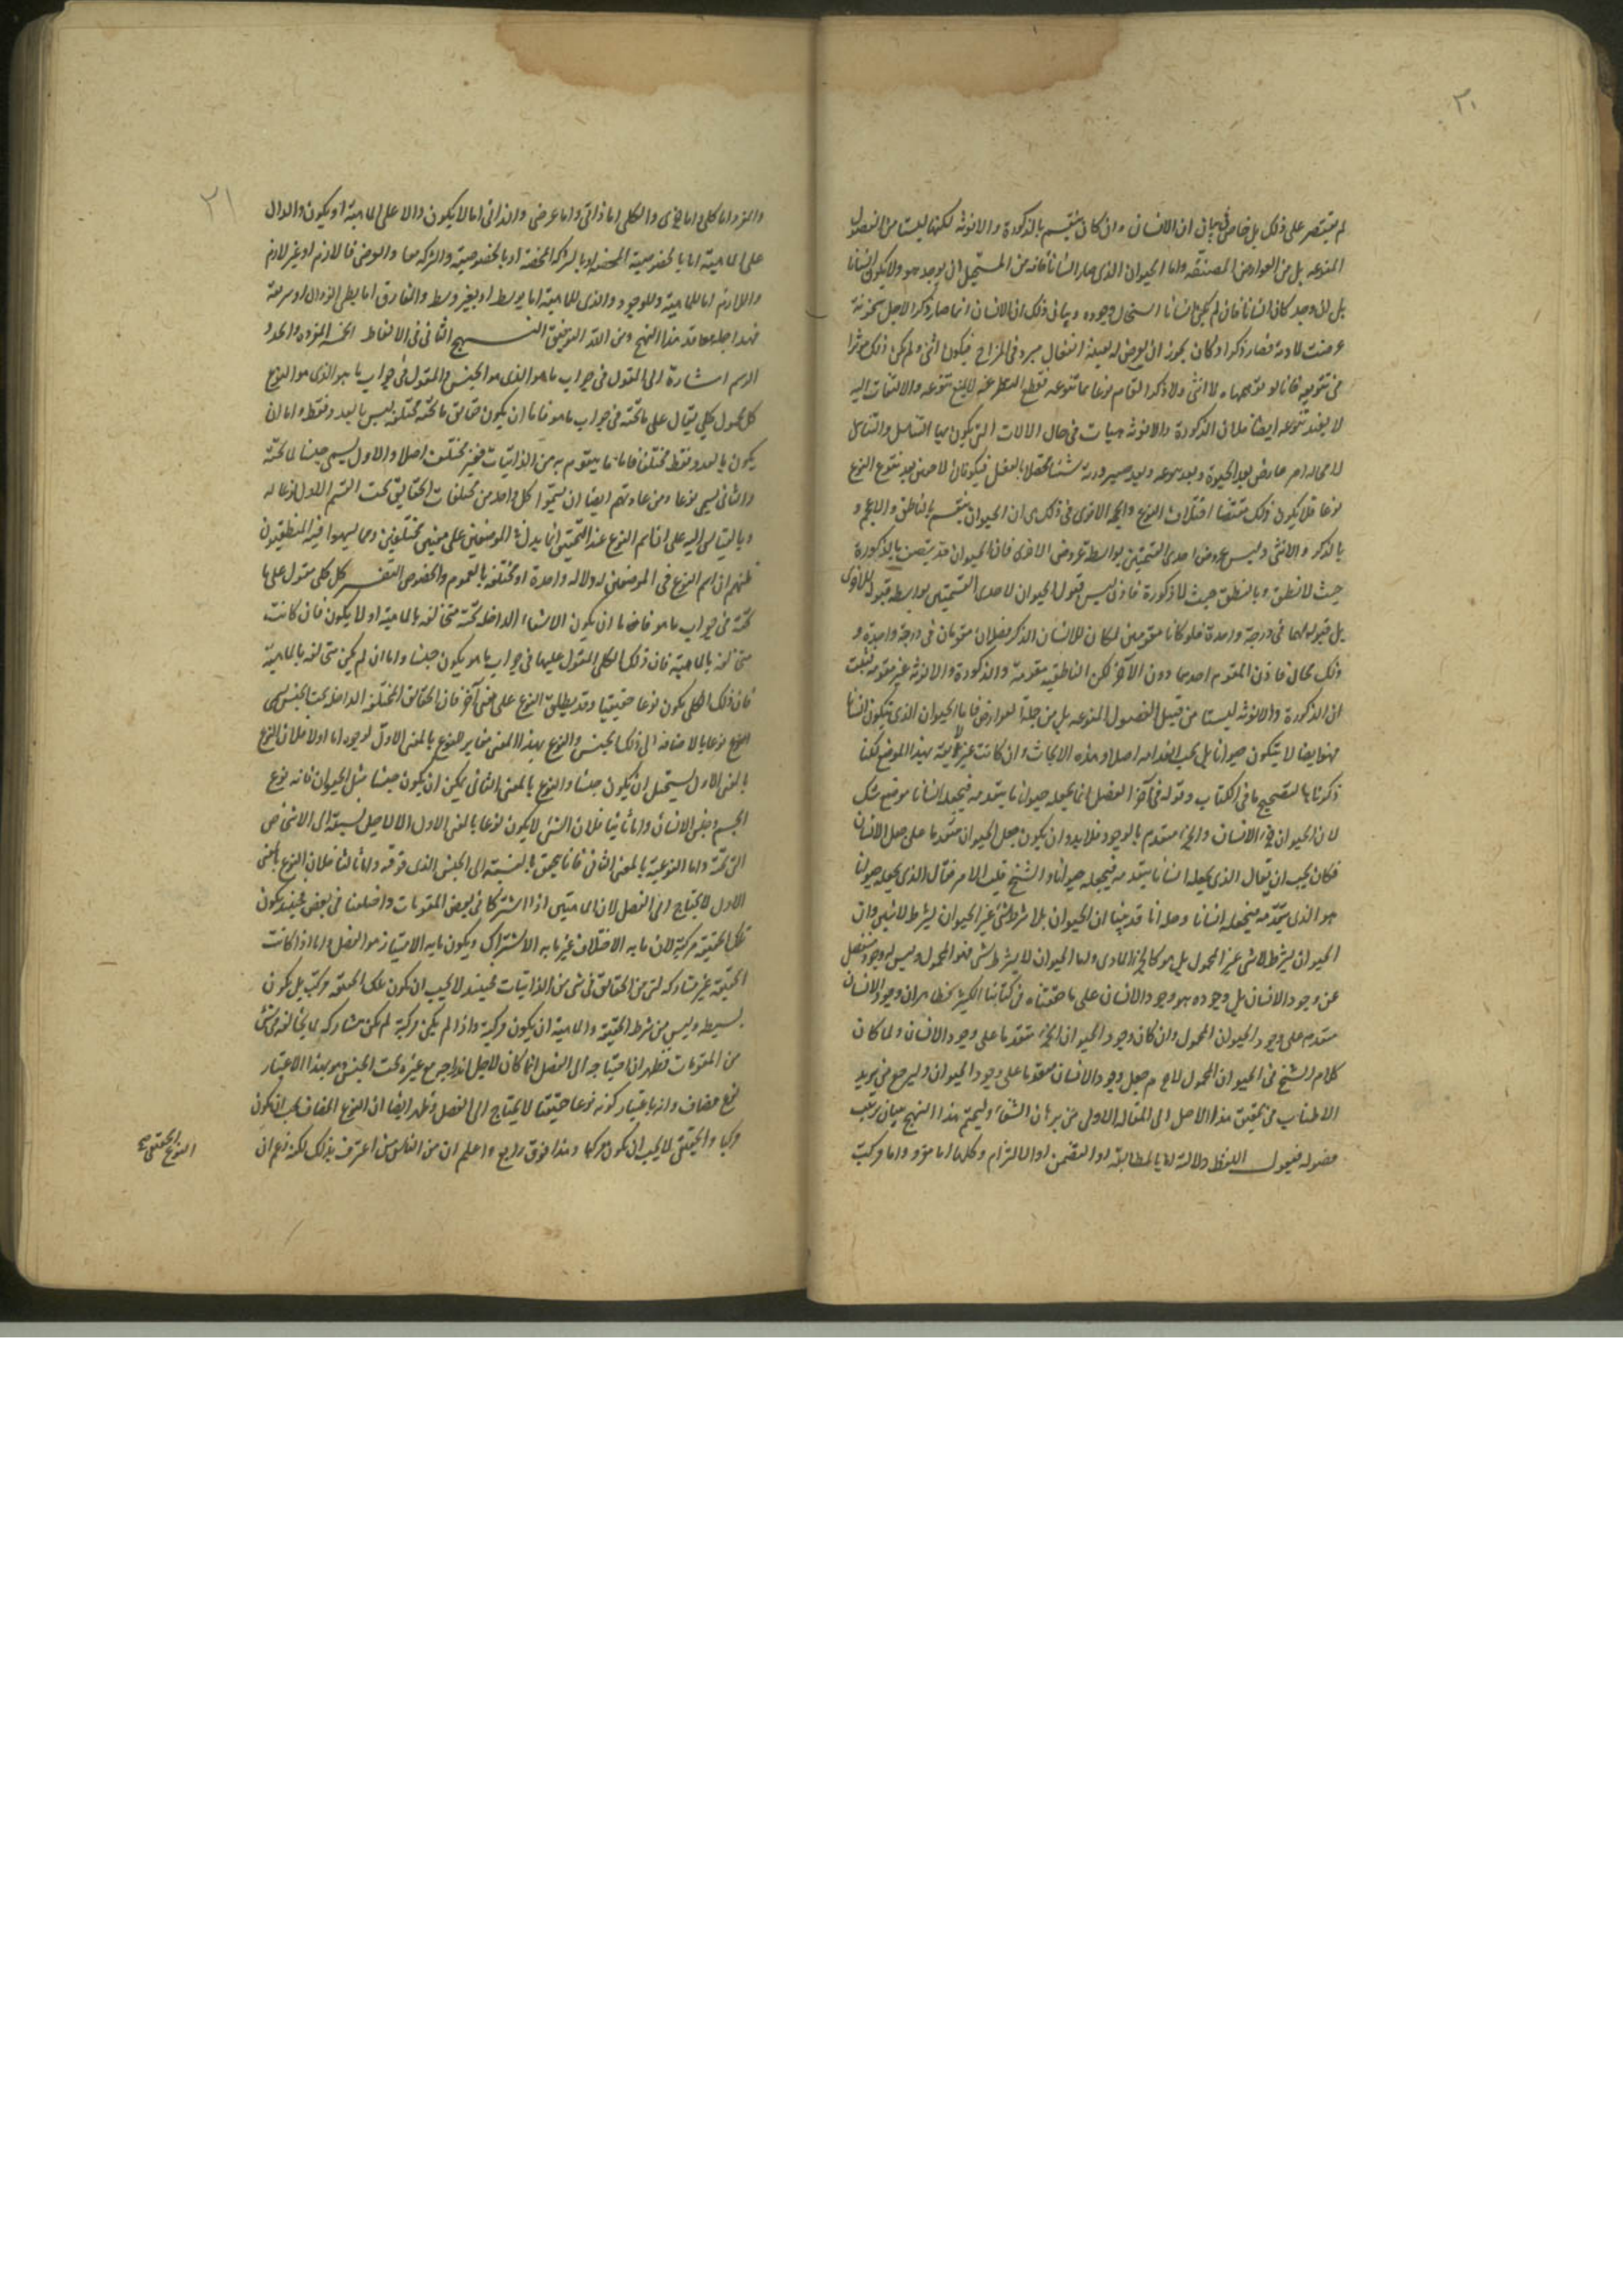 ٢٠
لم يقتصر على ذلك بل خاض في بيان ان الانسان وان كان ينقسم بالذكورة والانوثة لكنها ليستا من الفصول
المنوعه بل من العوارض المصنفه واما الحيوان الذى صار انسانا فانه من المستحيل ان يوجد هو ولا يكون انسانا
بل ان وجد كان انسانا فان لم يكن انسانا استحال وجوده وبيان ذلك ان الانسان انما صار ذكرا لاجل سخونة
عرضت لمادته فصار ذكرا وكان يجوز ان يعرض له بعينه انفعال مبرد فى المزاج فيكون انثى ولم يكن ذلك مؤثرا
فى تنويعه فانا لو توهمناه لا انثى ولا ذكرا لقام نوعا بما تنوعه فقطع النظر عنه لا يمنع تنوعه والالتفات اليه
لا يفيد تنوعه ايضا فلان الذكورة والانوثة هيآت فى حال الالات التى يكون بها التناسل والتناسل
لا محاله امر عارض بعد الحيوة وبعد تنوعه وبعد صيرورته شيئا محصلا بالفعل فيكونان لاحقين بعد تنوع النوع
نوعا فلا يكون ذلك مقتضيا اختلاف النوع والحجة الاقوى فى ذلك هى ان الحيوان ينقسم بالناطق والاعجم و
بالذكر والانثى وليس عروض احدى القسمتين بواسطة عروض الاخرى فان الحيوان قد يتصف بالذكورة
حيث لا نطق وبالنطق حيث لا ذكورة فاذن ليس قبول الحيوان لاحدى القسمتين بواسطة قبوله للاخرى
بل قبوله لهما فى درجة واحدة فلو كانا مقومين لكان للانسان الذكر فصلان مقومان فى درجة واحدة و
ذلك محال فاذن المقوم احدهما دون الآخر لكن الناطقية مقومة والذكورة والانوثة غير مقومة فثبت
ان الذكورة والانوثة ليستا من قبيل الفصول المنوعه بل من جملة العوارض فاما الحيوان الذى يتكون انسانا
فهو ايضا لا يتكون حيوانا بل يجب انعدامه اصلا وهذه الابحاث وان كانت غير لايقة بهذا الموضع لكنا
ذكرناها لتصحيح ما فى الكتاب وقوله فى آخر الفصل انما يجعله حيوانا يتقدمه فيجعله انسانا موضع شك
لان الحيوان جزء الانسان والجزء متقدم بالوجود فلا بد وان يكون جعل الحيوان متقدما على جعل الانسان
فكان يجب ان يقال الذى يجعله انسانا يتقدمه فيجعله حيوانا والشيخ قلب الامر فقال الذى يجعله حيوانا
هو الذى يتقدمه فيجعله انسانا وحله انا قد بينا ان الحيوان بلا شرط شئ غير الحيوان بشرط لا شئ وان
الحيوان بشرط لا شئ غير المحمول بل هو كالجزء المادى واما الحيوان لا بشرط شئ فهو المحمول وليس له وجود منفصل
عن وجود الانسان بل وجوده هو وجود الانسان على ما حققناه فى كتابنا الكبير فظاهر ان وجود الانسان
متقدم على وجود الحيوان المحمول وان كان وجود الحيوان الجزء متقدما على وجود الانسان ولما كان
كلام الشيخ فى الحيوان المحمول لا جرم جعل وجود الانسان متقدما على وجود الحيوان وليرجع من يريد
الاطناب فى تحقيق هذا الاصل الى المقالة الاولى من برهان الشفاء وليختم هذا النهج ببيان ترتيب
فصوله فنقول اللفظ دلالته اما بالمطابقة او التضمن او الالتزام وكلها اما مفرد واما مركب
٢١
والمفرد اما كلى واما جزى والكلى اما ذاتى واما عرضى والذاتى اما لا يكون دالا على الماهية او يكون والدال
على الماهية اما بالخصوصية المحضة او بالشركة المحضة او بالخصوصية والشركة معا والعرضى فاما لازم او غير لازم
واللازم اما للماهية وللوجود والذى للماهية اما بوسط او بغير وسط والمفارق اما بطى الزوال او سريعه
فهذا جملة معاقد هذا النهج ومن الله التوفيق النهج الثانى فى الالفاظ الخمسة المفردة والحد و
الرسم اشارة الى المقول فى جواب ما هو الذى هو الجنس والمقول فى جواب ما هو الذى هو النوع
كل محمول كلى يقال على ما تحته فى جواب ما هو فاما ان يكون حقايق ما تحته مختلفة ليس بالعدد فقط واما ان
يكون بالعدد فقط مختلفا فاما ما يتقوم به من الذاتيات فغير مختلف اصلا والاول يسمى جنسا لما تحته
والثانى يسمى نوعا ومن عادتهم ايضا ان يسموا كل واحد من مختلفات الحقايق تحت القسم الاول نوعا له
وبالقياس اليه على ان اسم النوع عند التحقيق انما يدل فى الموضعين على معنيين مختلفين ومما يسهوا فيه المنطقيون
ظنهم ان اسم النوع فى الموضعين له دلالة واحدة او مختلفة بالعموم والخصوص التفسير كل كلى مقول على ما
تحته فى جواب ما هو فاما ان يكون الاشياء الداخلة تحته متخالفه بالماهية او لا يكون فان كانت
متخالفة بالماهية فان ذلك الكلى المقول عليها فى جواب ما هو يكون جنسا واما ان لم يكن متخالفه بالماهية
فان ذلك الكلى يكون نوعا حقيقيا وقد يطلق النوع على معنى آخر فان الحقائق المختلفة الداخلة تحت الجنس يسمى
النوع نوعا بالاضافة الى ذلك الجنس والنوع بهذا المعنى مغاير للنوع بالمعنى الاول لوجوه اما اولا فلان النوع
بالمعنى الاول يستحيل ان يكون جنسا والنوع بالمعنى الثانى يمكن ان يكون جنسا مثل الحيوان فانه نوع
الجسم وجنس الانسان واما ثانيا فلان الشئ لا يكون نوعا بالمعنى الاول الا لاجل نسبته الى الاشخاص
التى تحته واما النوعية بالمعنى الثانى فانما يتحقق بالنسبة الى الجنس الذى فوقه واما ثالثا فلان النوع بالمعنى
الاول لا يحتاج الى الفصل لان الماهيتين اذا اشتركتا فى بعض المقومات واختلفتا فى بعض فحينئذ يكون
تلك الحقيقة مركبة لان ما به الاختلاف غير ما به الاشتراك ويكون ما به الامتياز هو الفصل واما اذا كانت
الحقيقة غير مشاركه لشئ من الحقائق فى شئ من الذاتيات فحينئذ لا يجب ان يكون تلك الحقيقة مركبة بل يكون
بسيطه وليس من شرط الحقيقة والماهية ان يكون مركبة واذا لم يكن مركبة لم يكن مشاركه لما يخالفه فى شئ
من المقومات فظهر ان احتياجه الى الفصل انما كان لاجل اندراجه مع غيره تحت الجنس وهو بهذا الاعتبار
نوع مضاف وانه باعتبار كونه نوعا حقيقيا لا يحتاج الى الفصل وظهر ايضا ان النوع المضاف يجب ان يكون
مركبا والحقيقى لا يجب ان يكون مركبا وهذا فرق رابع واعلم ان من الناس من اعترف بذلك لكنه زعم ان
النوع الحقيقى